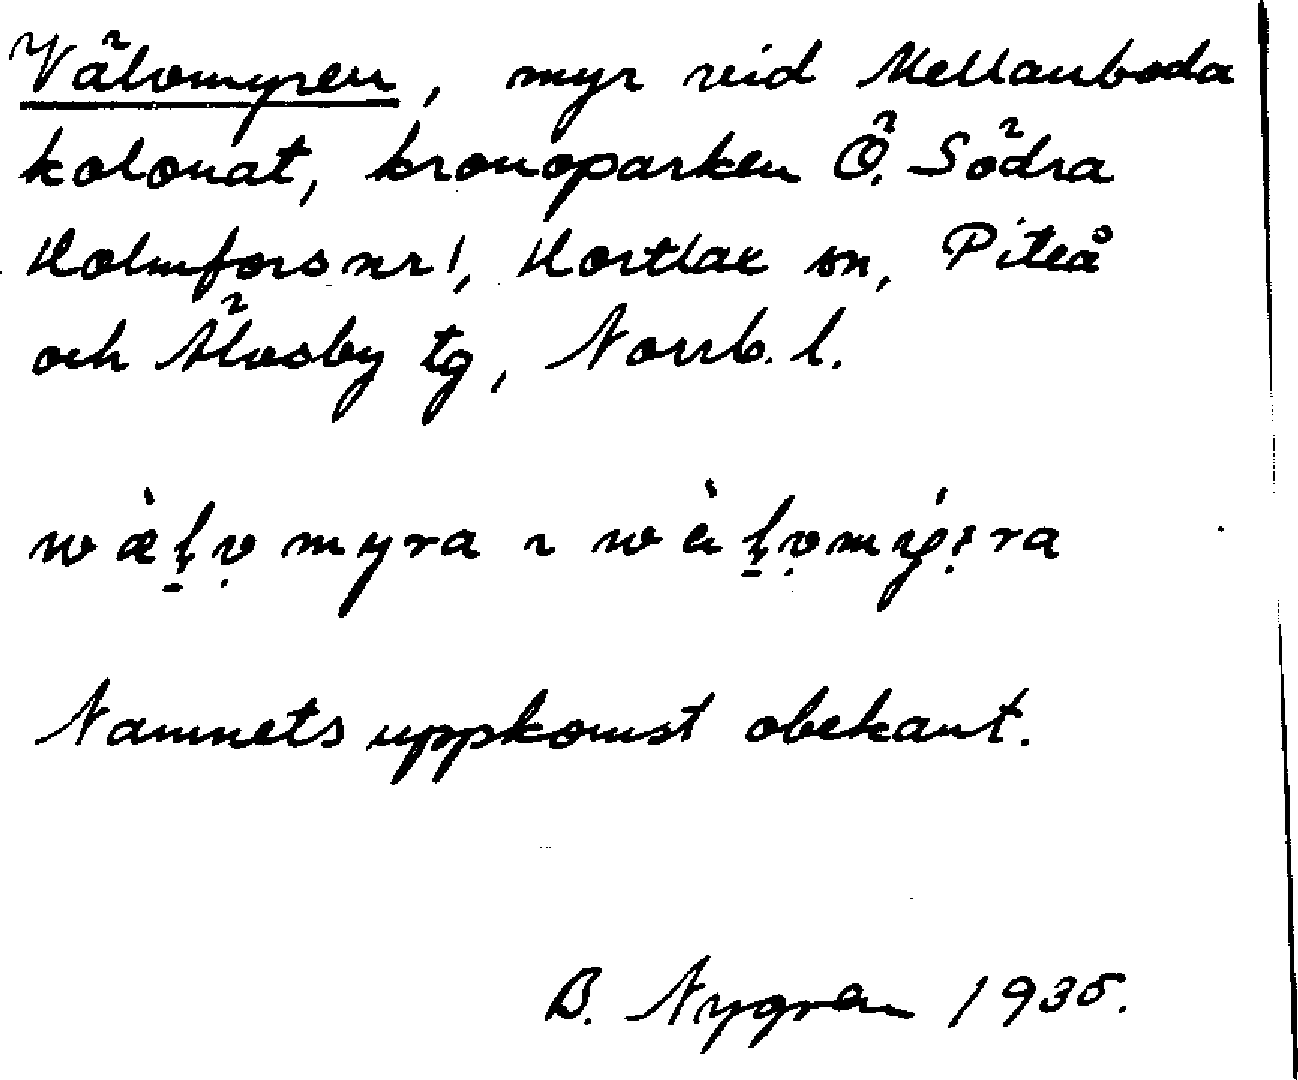 Välvomyren, myr vid Mellanboda
kolonat, kronoparken Ö. Södra
Holmfors nr 1, Hortlax sn, Piteå
och Älvsby tg, Norrb. l.
myra
Namnets uppkomst obekant.
B. Nygren 1935.